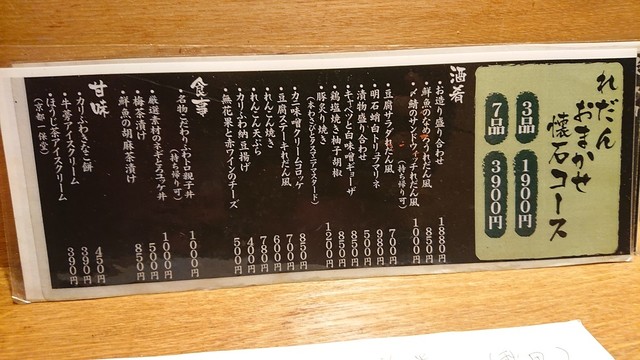 れだん
おまかせ
懐石コース
3品 1900円
7品 3900円
酒肴
・お造り盛り合わせ 1880円
・鮮魚のなめろうれだん風 850円
・〆鯖のサンドウィッチれだん風 1000円
(持ち帰り可)
・豆腐サラダれだん風 700円
・明石蛸白トリュフマリネ 980円
・漬物盛り合わせ 500円
・キャベツと白味噌ギョーザ 850円
・鶏塩焼き柚子胡椒 850円
・豚炙り焼き 1200円
(本わさびとタスマニアマスタード)
・カニ味噌クリームコロッケ 850円
・豆腐ステーキれだん風 700円
・れんこん焼き 600円
・れんこん天ぷら 780円
・カリふわ納豆揚げ 400円
・無花果と赤ワインのチーズ 500円
食事
・名物こだわりふわとろ親子丼 1000円
(持ち帰り可)
・厳選素材のネギとろユッケ丼 1000円
・梅茶漬け 500円
・鮮魚の胡麻茶漬け 850円
甘味
・カリふわきなこ餅 450円
・牛蒡アイスクリーム 390円
・ほうじ茶アイスクリーム 390円
(京都 一保堂)